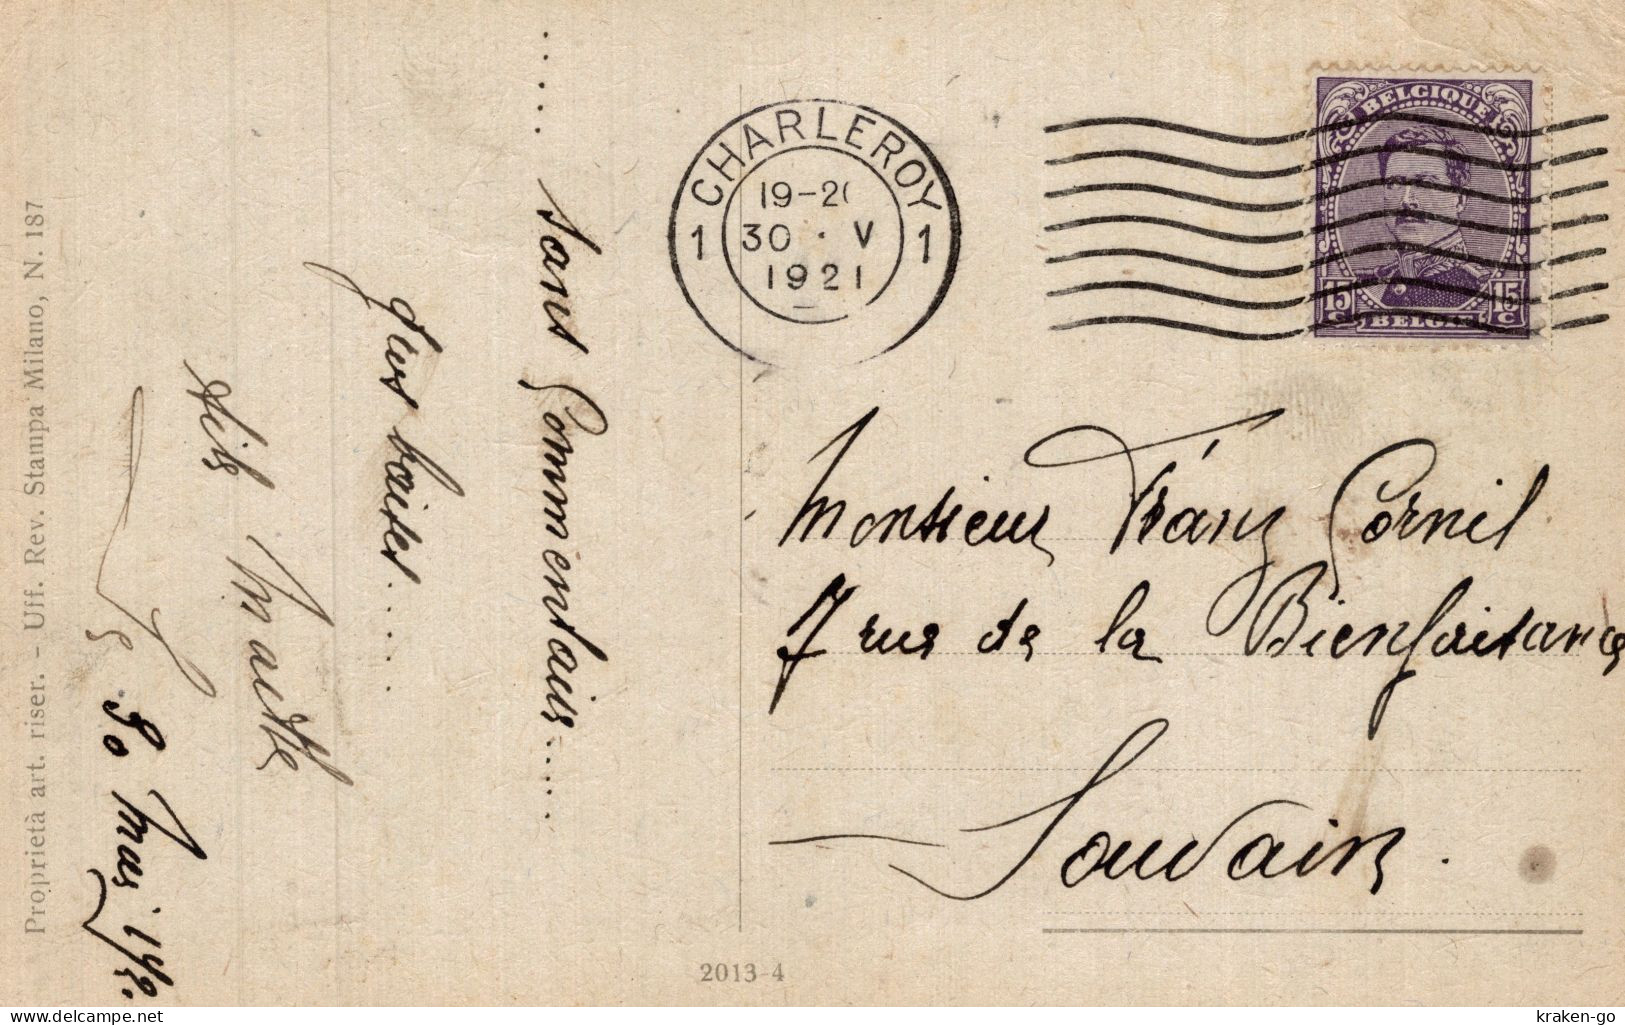 .... sans Commentair.....
gros baiser.....
Lile Maette
Le 30 Mai 1921.
Proprietà art. riser. - Uff. Rev. Stampa Milano, N. 187
CHARLEROY
1 1
19-20
30 . V
1921
BELGIQUE
15 C 15 C
BELGIË
Monsieur Franz Cornil
7 rue de la Bienfaisance
Louvain.
2013-4
kraken-go
www.delcampe.net